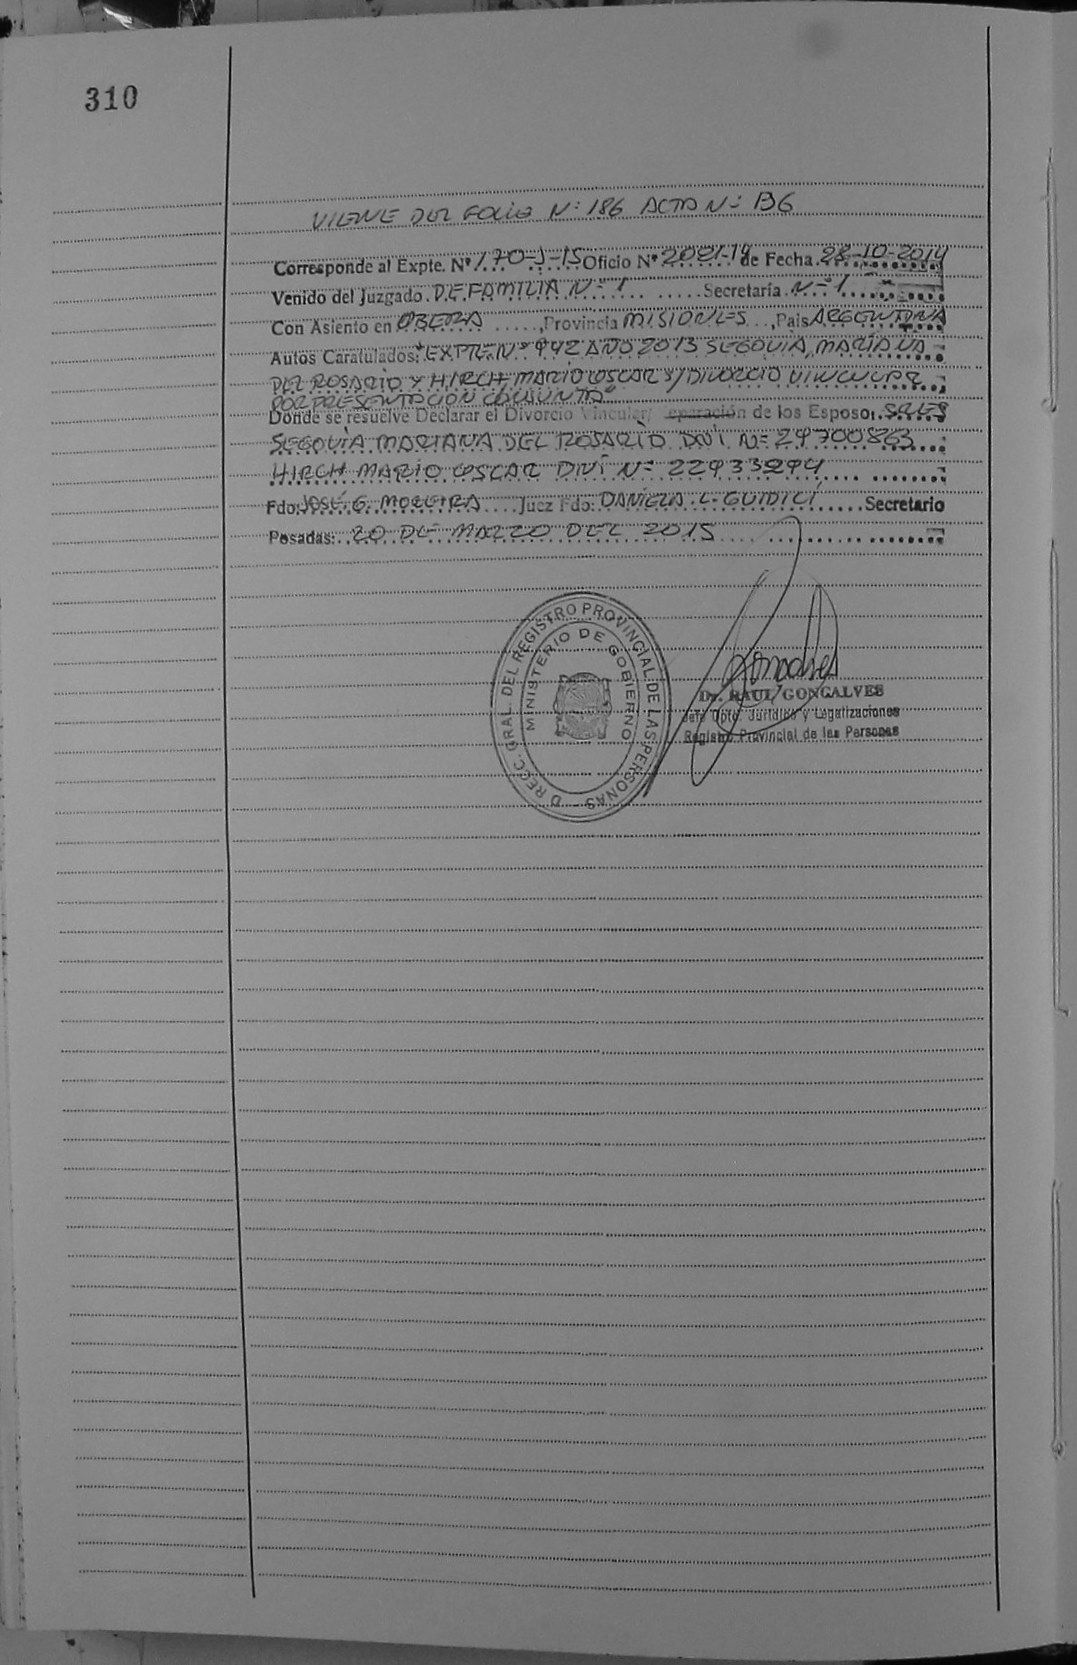 310
VIENE DEL FOLIO N: 186 ACTA N: 136
Corresponde al Expte. Nº 170-J-15 Oficio Nº 2021-14 de Fecha 28-10-2014
Venido del Juzgado D.E. FAMILIA N-1 Secretaría N-1
Con Asiento en OBERA, Provincia MISIONES, Pais ARGENTINA
Autos Caratulados: "EXPTE. Nº 942 AÑO 2013 SEGOVIA, MARIANA
DEL ROSARIO Y HIRCH, MARIO OSCAR S/ DIVORCIO VINCULAR
POR PRESENTACION CONJUNTA"
Donde se resuelve Declarar el Divorcio Vincular/ eparación de los Esposos. SRES
SEGOVIA MARIANA DEL ROSARIO DNI N= 29700863
HIRCH MARIO OSCAR DNI N= 22933294
Fdo: JOSÉ G. MOREIRA Juez Fdo: DANIELA L. GUIDICI Secretario
Posadas: 20 DE MARZO DEL 2015
DIRECC. GRAL. DEL REGISTRO PROVINCIAL DE LAS PERSONAS
MINISTERIO DE GOBIERNO
Gonçalves
Dr. RAUL GONÇALVES
Jefe Dpto. Jurídico y Legalizaciones
Registro Provincial de las Personas